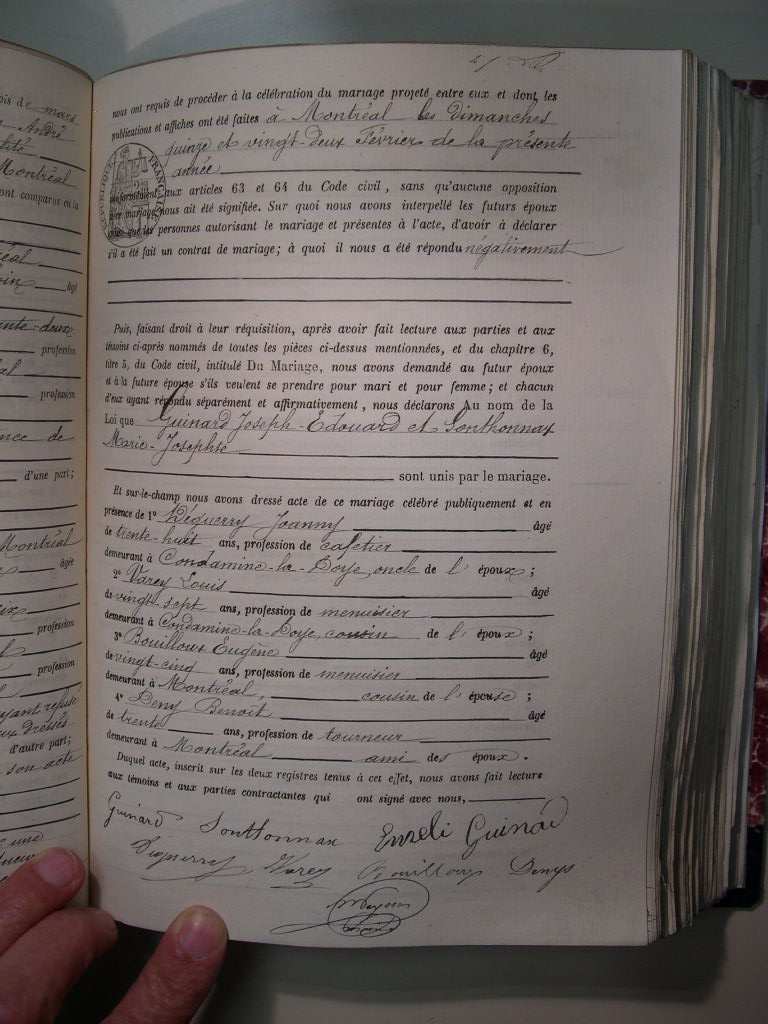 ois de mars
André
Montréal
ont comparus en la
âgé
ente-deux
profession
profession
ence de
d'une part;
Montréal
âgé
profession
profession
ayant refusé
d'autre part;
son acte
nous ont requis de procéder à la célébration du mariage projeté entre eux et dont les
publications et affiches ont été faites à Montréal les dimanches
quinze et vingt-deux Février de la présente
année
RÉPUBLIQUE FRANÇAISE
conformément aux articles 63 et 64 du Code civil, sans qu'aucune opposition
au mariage nous ait été signifiée. Sur quoi nous avons interpellé les futurs époux
ainsi que les personnes autorisant le mariage et présentes à l'acte, d'avoir à déclarer
s'il a été fait un contrat de mariage; à quoi il nous a été répondu négativement
Puis, faisant droit à leur réquisition, après avoir fait lecture aux parties et aux
témoins ci-après nommés de toutes les pièces ci-dessus mentionnées, et du chapitre 6,
titre 5, du Code civil, intitulé Du Mariage, nous avons demandé au futur époux
et à la future épouse s'ils veulent se prendre pour mari et pour femme; et chacun
d'eux ayant répondu séparément et affirmativement, nous déclarons Au nom de la
Loi que Guinard Joseph-Édouard et Sonthonnax
Marie-Josephte
sont unis par le mariage.
Et sur-le-champ nous avons dressé acte de ce mariage célébré publiquement et en
présence de 1° Déguerry Joanny âgé
de trente-huit ans, profession de cafetier
demeurant à Condamine-la-Doye, oncle de l'époux;
2° Varey Louis âgé
de vingt-sept ans, profession de menuisier
demeurant à Condamine-la-Doye, cousin de l'époux;
3° Bouilloux Eugène âgé
de vingt-cinq ans, profession de menuisier
demeurant à Montréal, cousin de l'épouse;
4° Deny Benoit âgé
de trente ans, profession de tourneur
demeurant à Montréal ami des époux.
Duquel acte, inscrit sur les deux registres tenus à cet effet, nous avons fait lecture
aux témoins et aux parties contractantes qui ont signé avec nous,
Guinard Sonthonnax Guinard
Déguerry Varey Bouilloux Denys